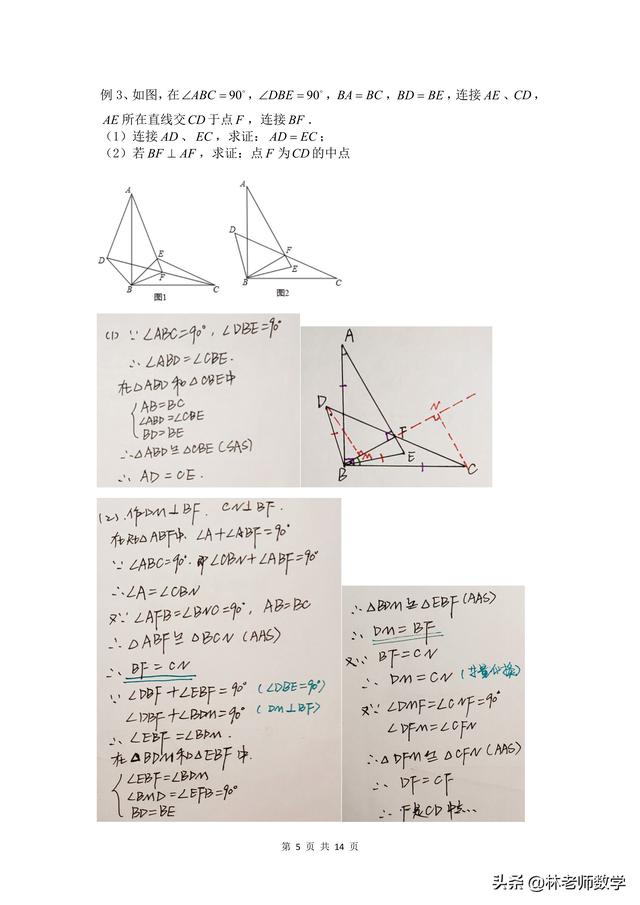 例 3、如图,在∠ABC = 90°,∠DBE = 90°,BA = BC,BD = BE,连接 AE、CD,
AE 所在直线交 CD 于点 F,连接 BF.
(1)连接 AD、EC,求证:AD = EC;
(2)若 BF ⊥ AF,求证:点 F 为 CD 的中点
A
D
E
F
B
C
图1
A
D
F
E
B
C
图2
(1) ∵ ∠ABC=90°, ∠DBE=90°
∴ ∠ABD=∠CBE.
在△ABD 和△CBE中
AB=BC
∠ABD=∠CBE
BD=BE
∴△ABD≌△CBE (SAS)
∴ AD=CE.
A
D
N
F
M
E
B
C
(2).作DM⊥BF. CN⊥BF.
在Rt△ABF中. ∠A+∠ABF=90°
∵ ∠ABC=90°. 即∠CBN+∠ABF=90°
∴∠A=∠CBN
又∵∠AFB=∠BNC=90°, AB=BC
∴ △ABF≌△BCN (AAS)
∴ BF=CN
∵ ∠DBF+∠EBF=90° (∠DBE=90°)
∠DBF+∠BDM=90° (DM⊥BF)
∴ ∠EBF=∠BDM.
在△BDM和△EBF中.
∠EBF=∠BDM
∠BMD=∠EFB=90°
BD=BE
∴△BDM≌△EBF (AAS)
∴ DM=BF
又∵ BF=CN
∴ DM=CN (等量代换)
又∵ ∠DMF=∠CNF=90°
∠DFM=∠CFN
∴△DFM≌△CFN (AAS)
∴ DF=CF
∴ F是CD中点...
第 5 页 共 14 页
头条 @林老师数学